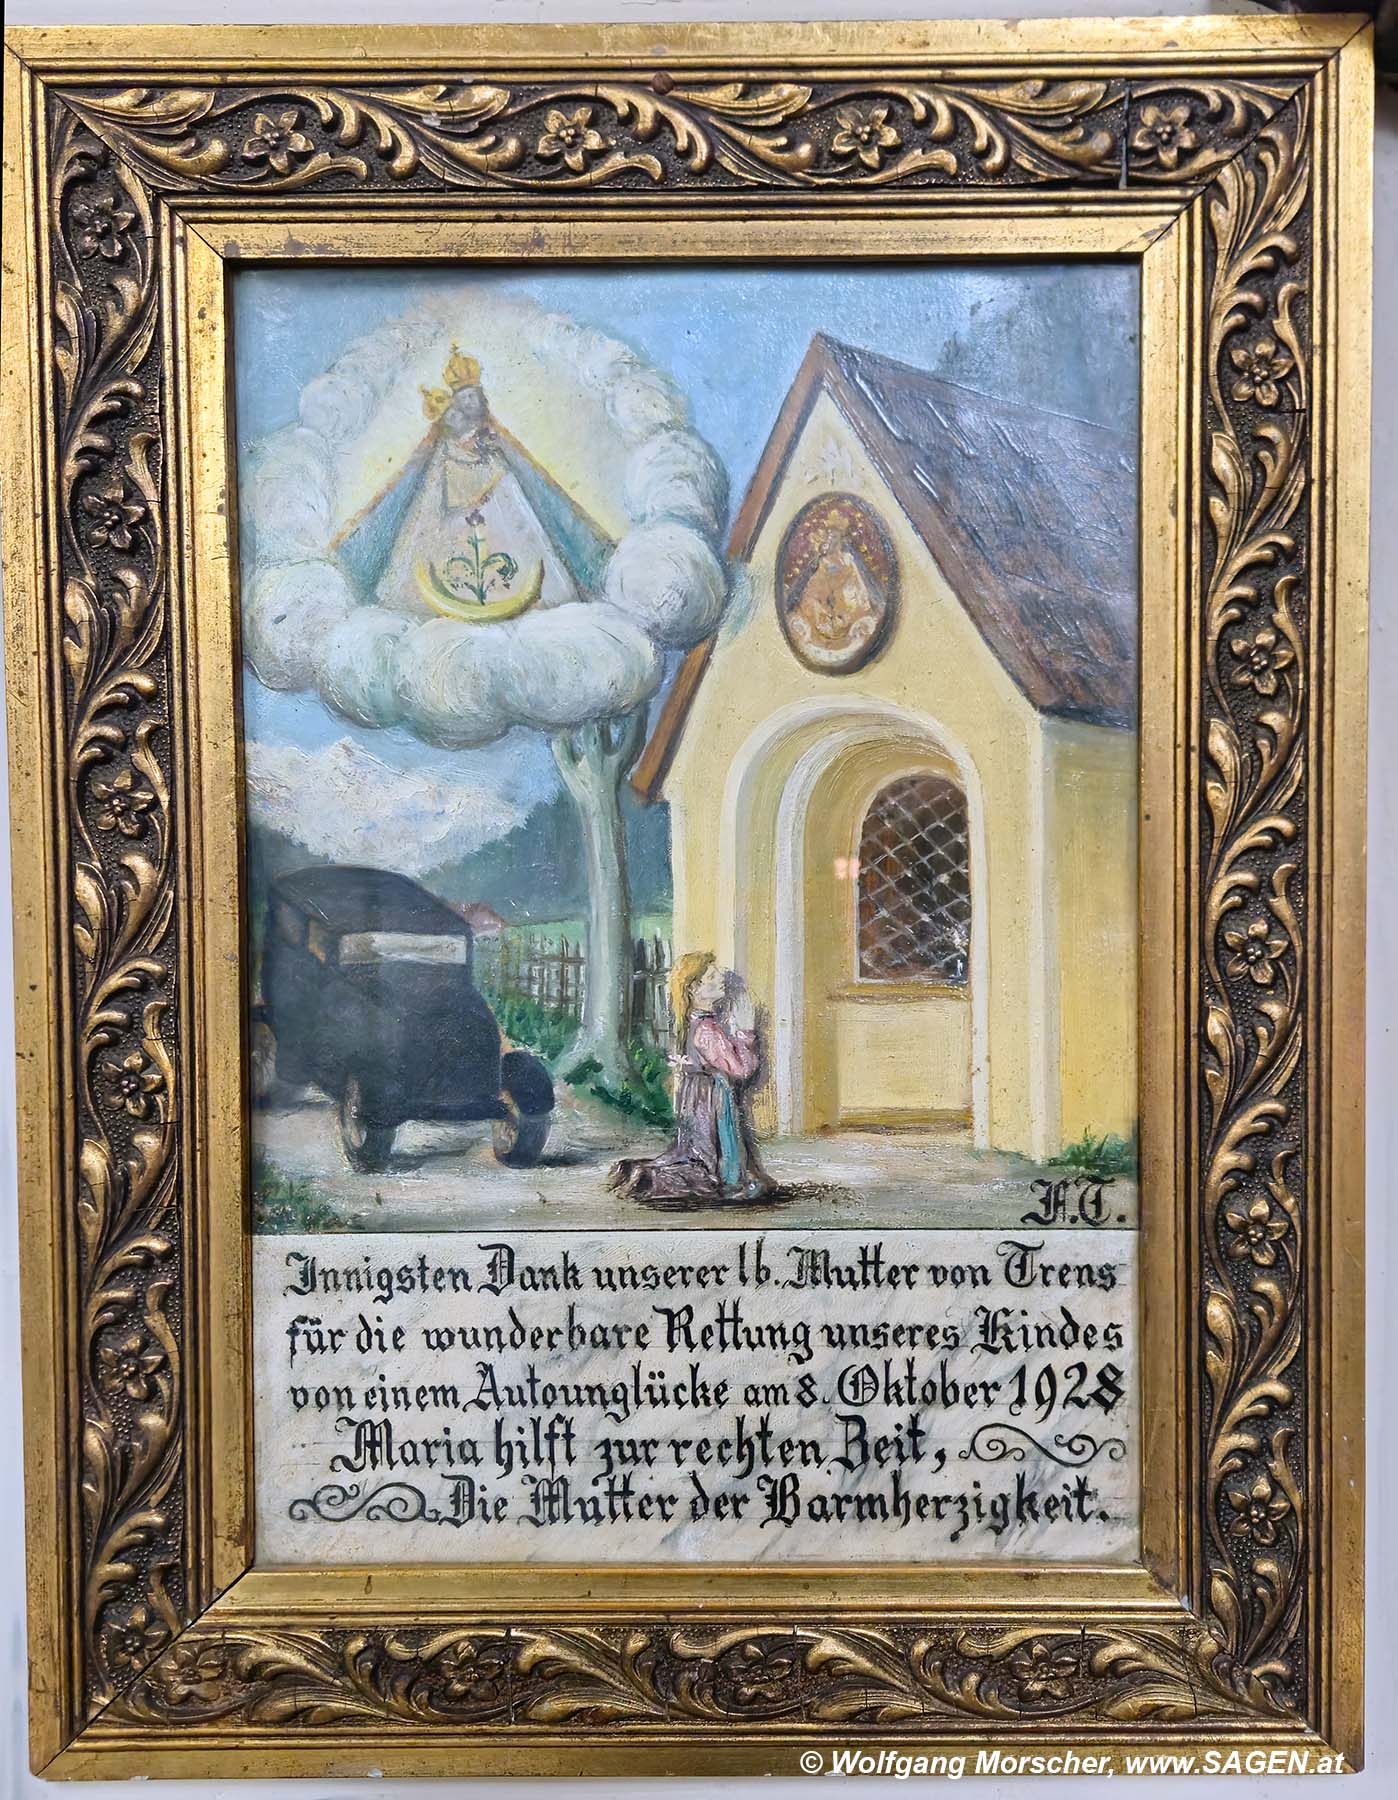 F.T.
Innigsten Dank unserer lb. Mutter von Trens
für die wunderbare Rettung unseres Kindes
von einem Autounglücke am 8. Oktober 1928
Maria hilft zur rechten Zeit,
Die Mutter der Barmherzigkeit.
© Wolfgang Morscher, www.SAGEN.at